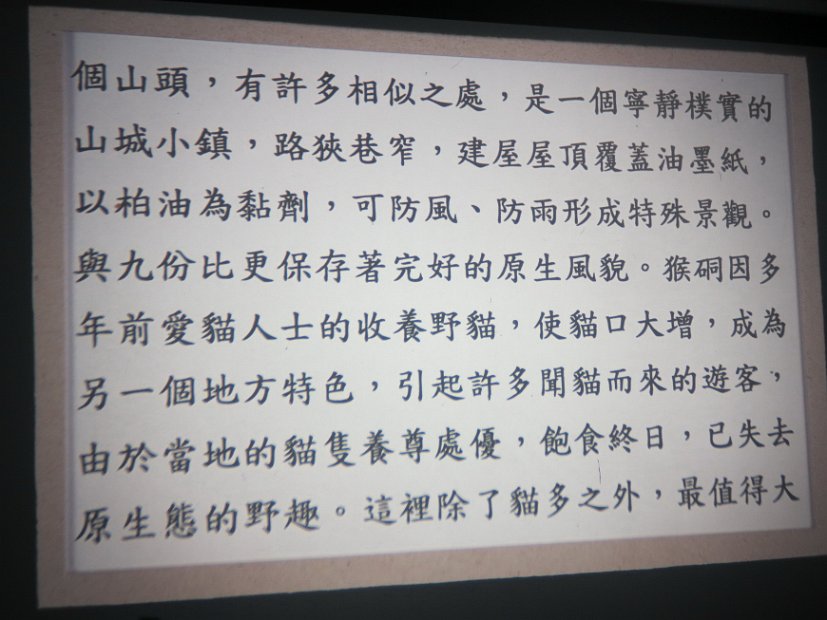 個山頭，有許多相似之處，是一個寧靜樸實的
山城小鎮，路狹巷窄，建屋屋頂覆蓋油墨紙，
以柏油為黏劑，可防風、防雨形成特殊景觀。
與九份比更保存著完好的原生風貌。猴硐因多
年前愛貓人士的收養野貓，使貓口大增，成為
另一個地方特色，引起許多聞貓而來的遊客，
由於當地的貓隻養尊處優，飽食終日，已失去
原生態的野趣。這裡除了貓多之外，最值得大